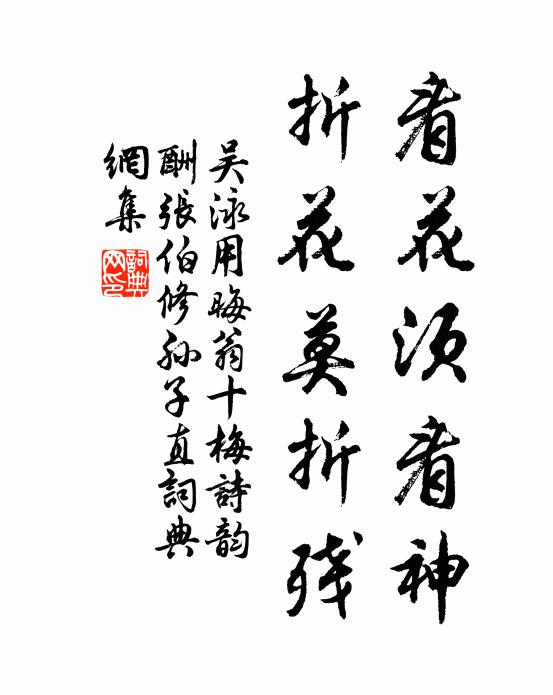 看花须看神
折花莫折残
吴泳用晦翁十梅詩韵
酬張伯修孙子直詞典
網集
詞典網印